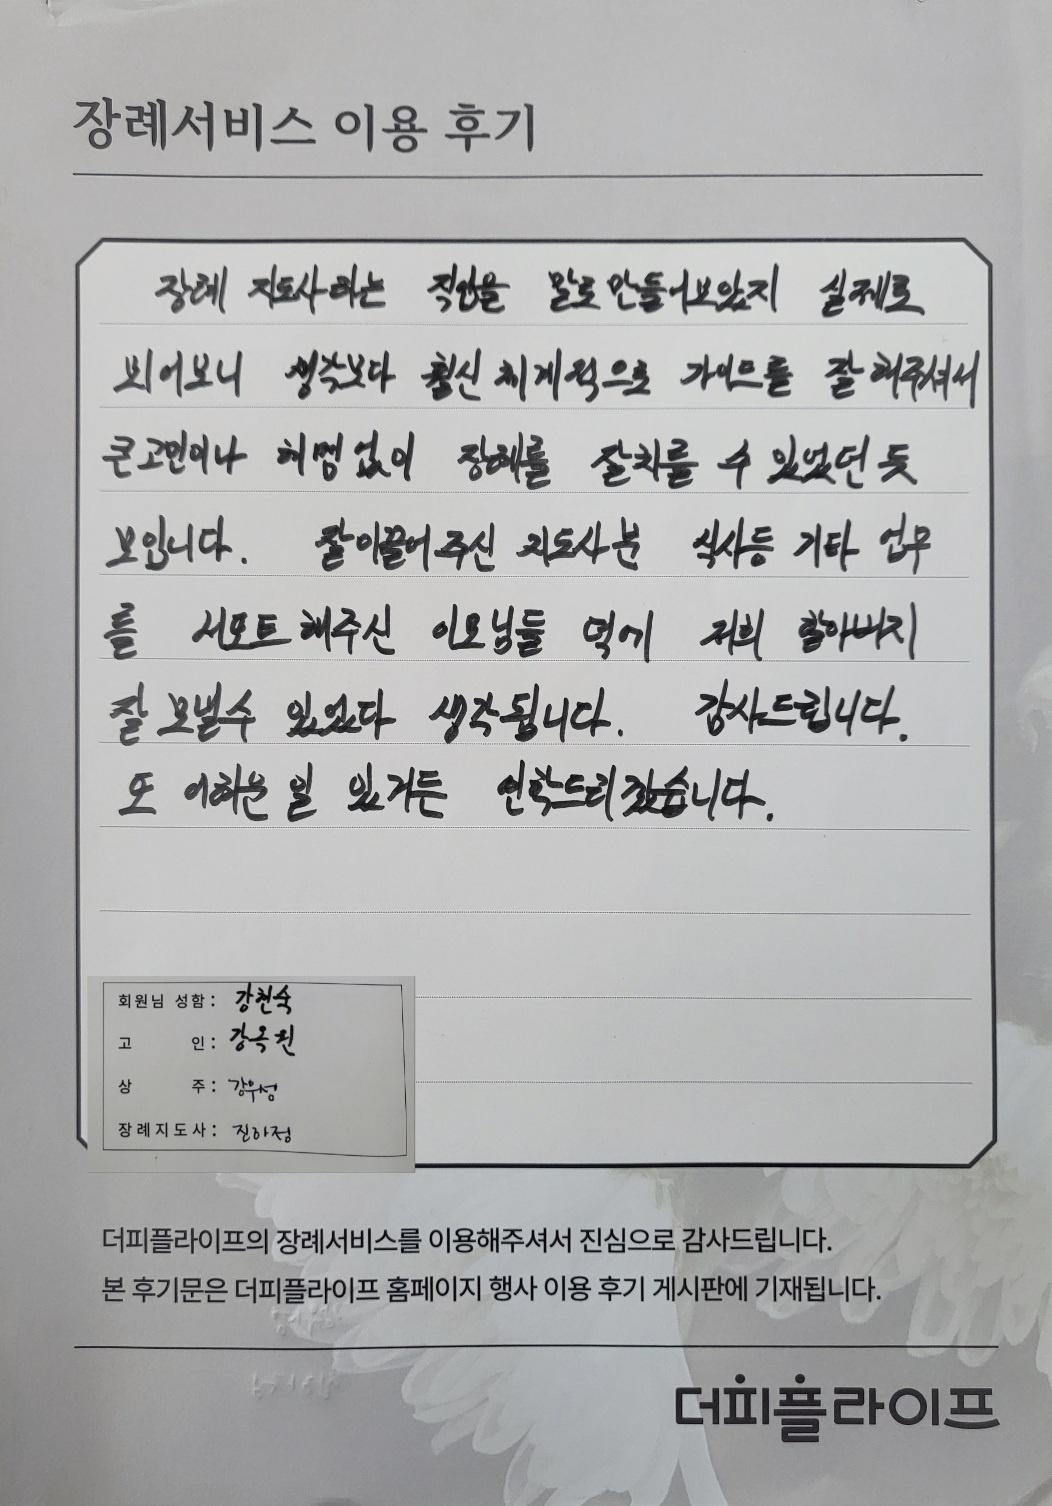 장례서비스 이용 후기
장례 지도사라는 직업을 말로만들어보았지 실제로
뵈어보니 생각보다 훨신 체계적으로 가이드를 잘 해주셔서
큰고민이나 허멍없이 장례를 잘치를 수 있었던 듯
보입니다. 잘이끌어주신 지도사분 식사등 기타 업무
를 서포트해주신 이모님들 덕에 저희 할아버지
잘 보낼수 있었다 생각됩니다. 감사드립니다.
또 어려운 일 있거든 연락드리겠습니다.
회원님 성함 : 강현숙
고 인 : 강옥원
상 주 : 강우성
장례지도사 : 진하정
더피플라이프의 장례서비스를 이용해주셔서 진심으로 감사드립니다.
본 후기문은 더피플라이프 홈페이지 행사 이용 후기 게시판에 기재됩니다.
더피플라이프